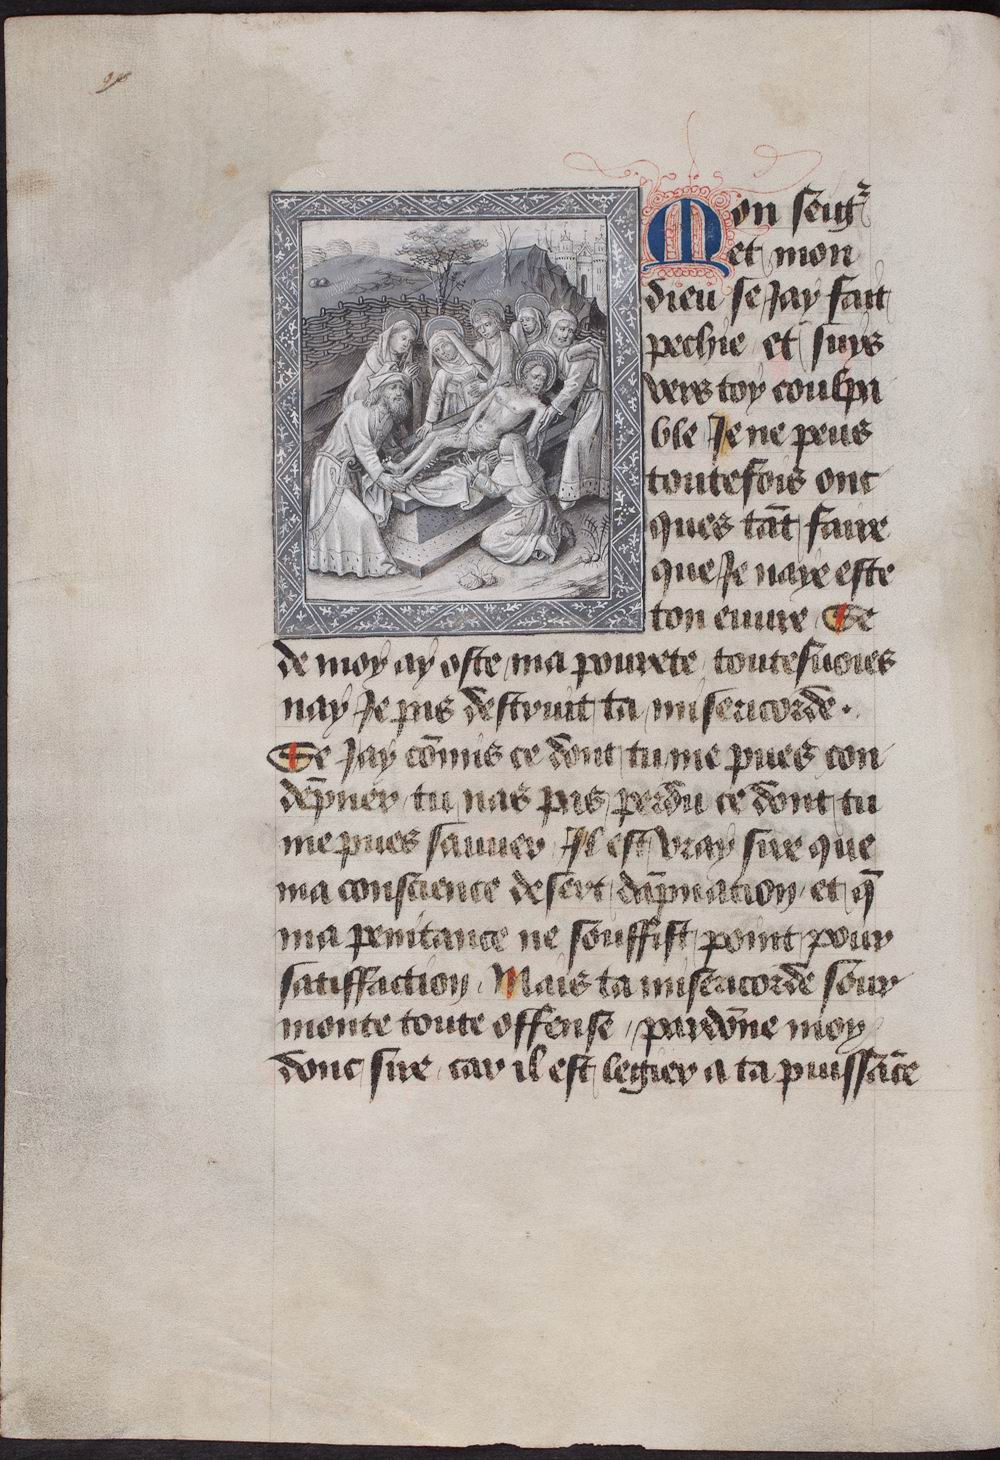 Mon seigr̄
et mon
dieu se Jay fait
pechie et suys
vers toy coulpa
ble Je ne peus
toutefois onc
ques tāt faire
que Je naye este
ton euure Se
de moy ay oste ma pourete toutesuoies
nay Je pas destruit ta misericorde.
Se Jay cōmis ce dont tu me pues con
dēpner tu nas pas perdu ce dont tu
me pues sauuer Il est vray sire que
ma conscience desert dāpnation et q̄
ma penitance ne souffist point pour
satiffaction. Mais ta misericorde sour
monte toute offense / pardōne moy
donc sire car il est legier a ta puissāce